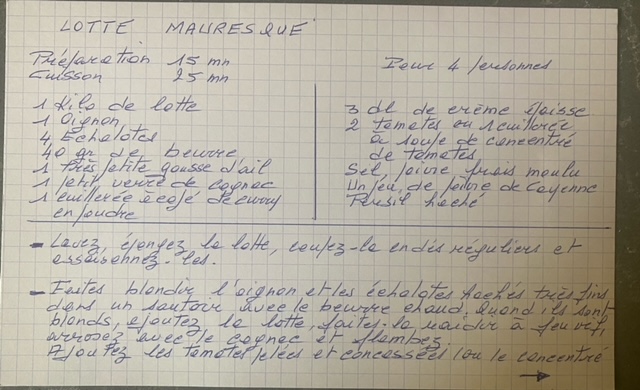 LOTTE MAURESQUE
Préparation 15 mn
Cuisson 25 mn
Pour 4 personnes
1 Kilo de lotte
1 Oignon
4 Echalotes
40 gr de beurre
1 très petite gousse d'ail
1 petit verre de cognac
1 cuillerée à café de curry
en poudre
3 dl de crème épaisse
2 tomates ou 1 cuillerée
à soupe de concentré
de tomates
Sel, poivre frais moulu
Un peu de poivre de Cayenne
Persil haché
- Lavez, épongez la lotte, coupez-la en dés réguliers et
assaisonnez-les.
- Faites blondir l'oignon et les échalotes hachés très fins
dans un sautoir avec le beurre chaud. Quand ils sont
blonds, ajoutez la lotte, faites-la raidir à feu vif,
arrosez avec le cognac et flambez.
Ajoutez les tomates pelées et concassées (ou le concentré